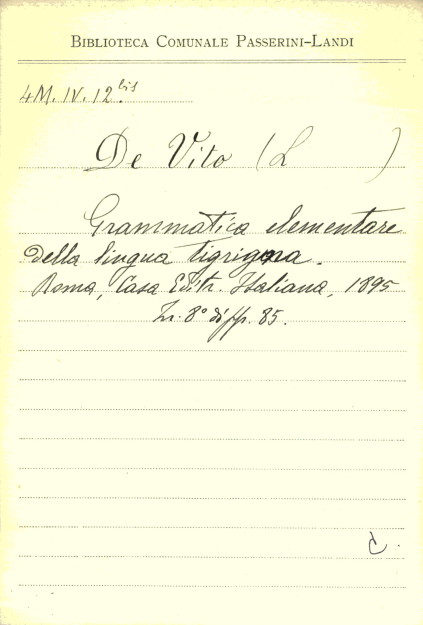 BIBLIOTECA COMUNALE PASSERINI-LANDI
4M. IV. 12 bis
De Vito (L )
Grammatica elementare
della lingua tigrigna.
Roma, Casa Editr. Italiana, 1895
In. 8° di pp. 85.
C.